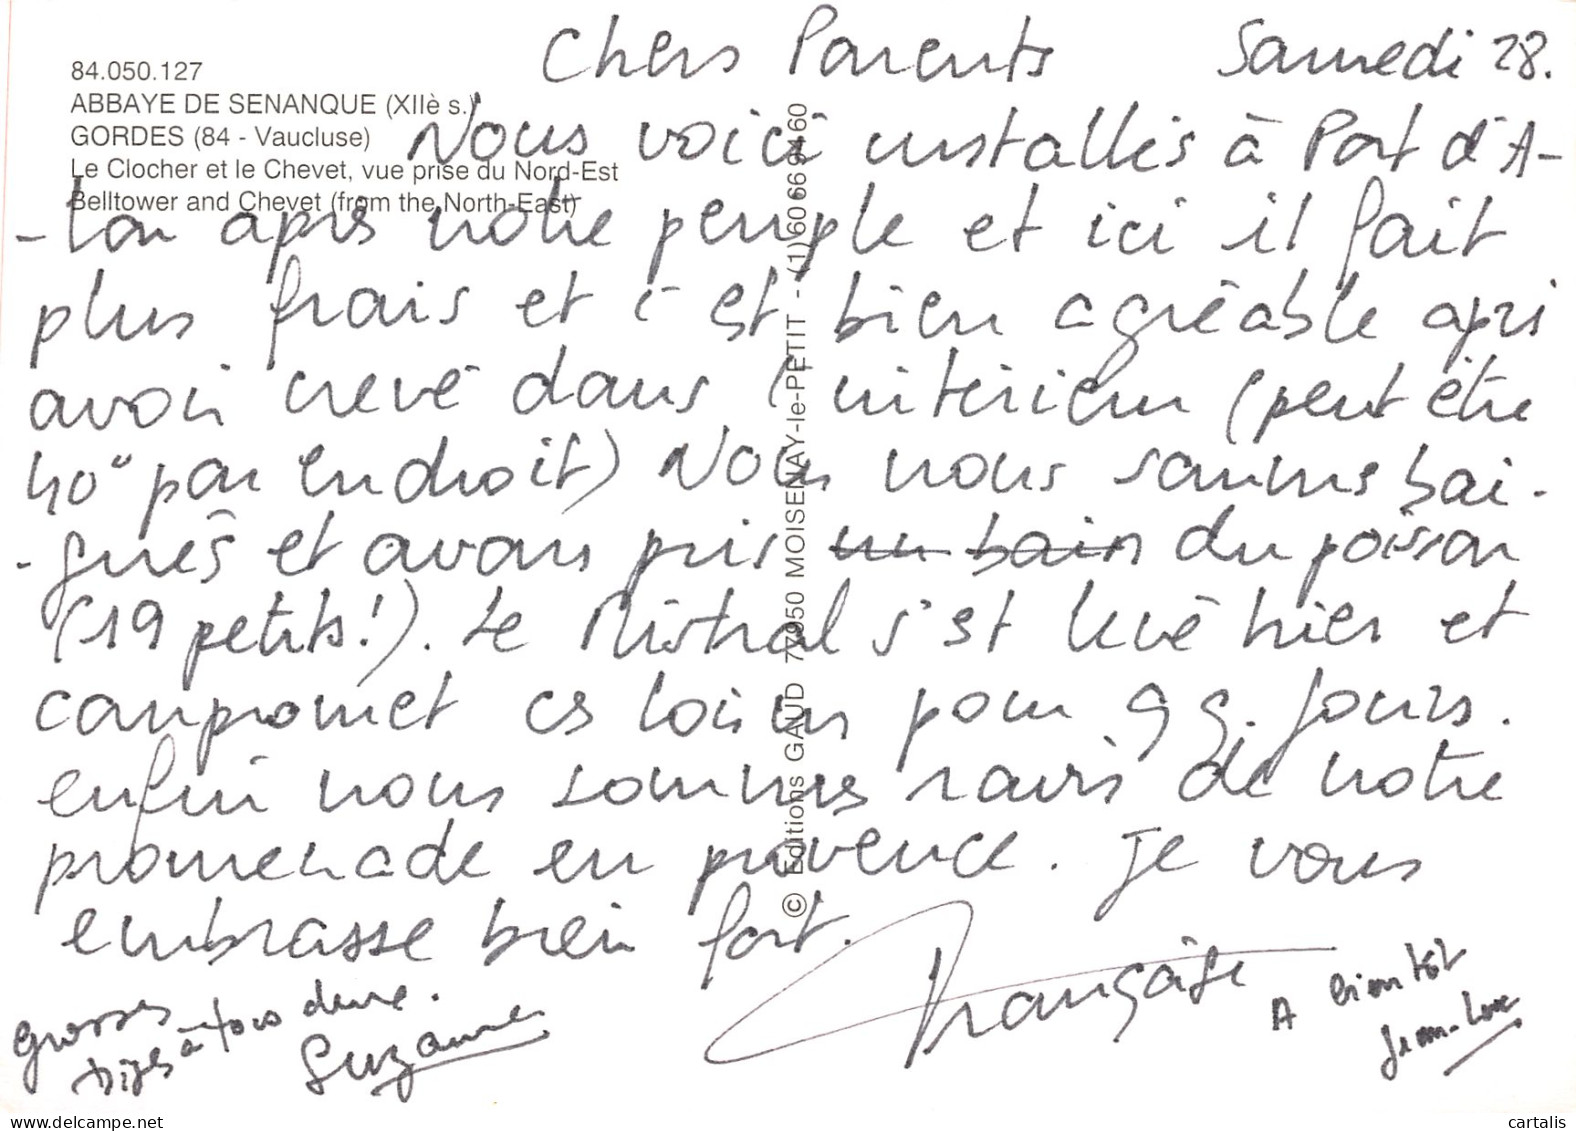 84.050.127
ABBAYE DE SENANQUE (XIIè s.)
GORDES (84 - Vaucluse)
Le Clocher et le Chevet, vue prise du Nord-Est
Belltower and Chevet (from the North-East)
© Editions GAUD 77950 MOISENAY-le-PETIT - (1) 60 66 94 60
Chers Parents Samedi 28.
Nous voici installés à Port d'A-
-lon après notre périple et ici il fait
plus frais et c'est bien agréable après
avoir crevé dans l'intérieur (peut être
40° par endroit) Nous nous sommes bai-
-gnés et avons pris un bain du poisson
(19 petits!). Le Mistral s'est levé hier et
compromet ces loisirs pour qq. jours.
enfin nous sommes ravis de notre
promenade en provence. Je vous
embrasse bien fort.
Françoise
grosses
bizes à tous deux.
Suzanne
A bientôt
Jean-Luc
cartalis
www.delcampe.net